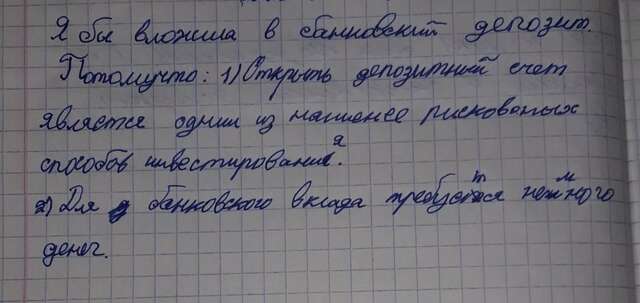 Я бы вложила в банковский депозит.
Потомучто: 1) Открыть депозитный счет
является одним из наименее рискованых
способов инвестирования.
2) Для банковского вклада требуется немного
денег.